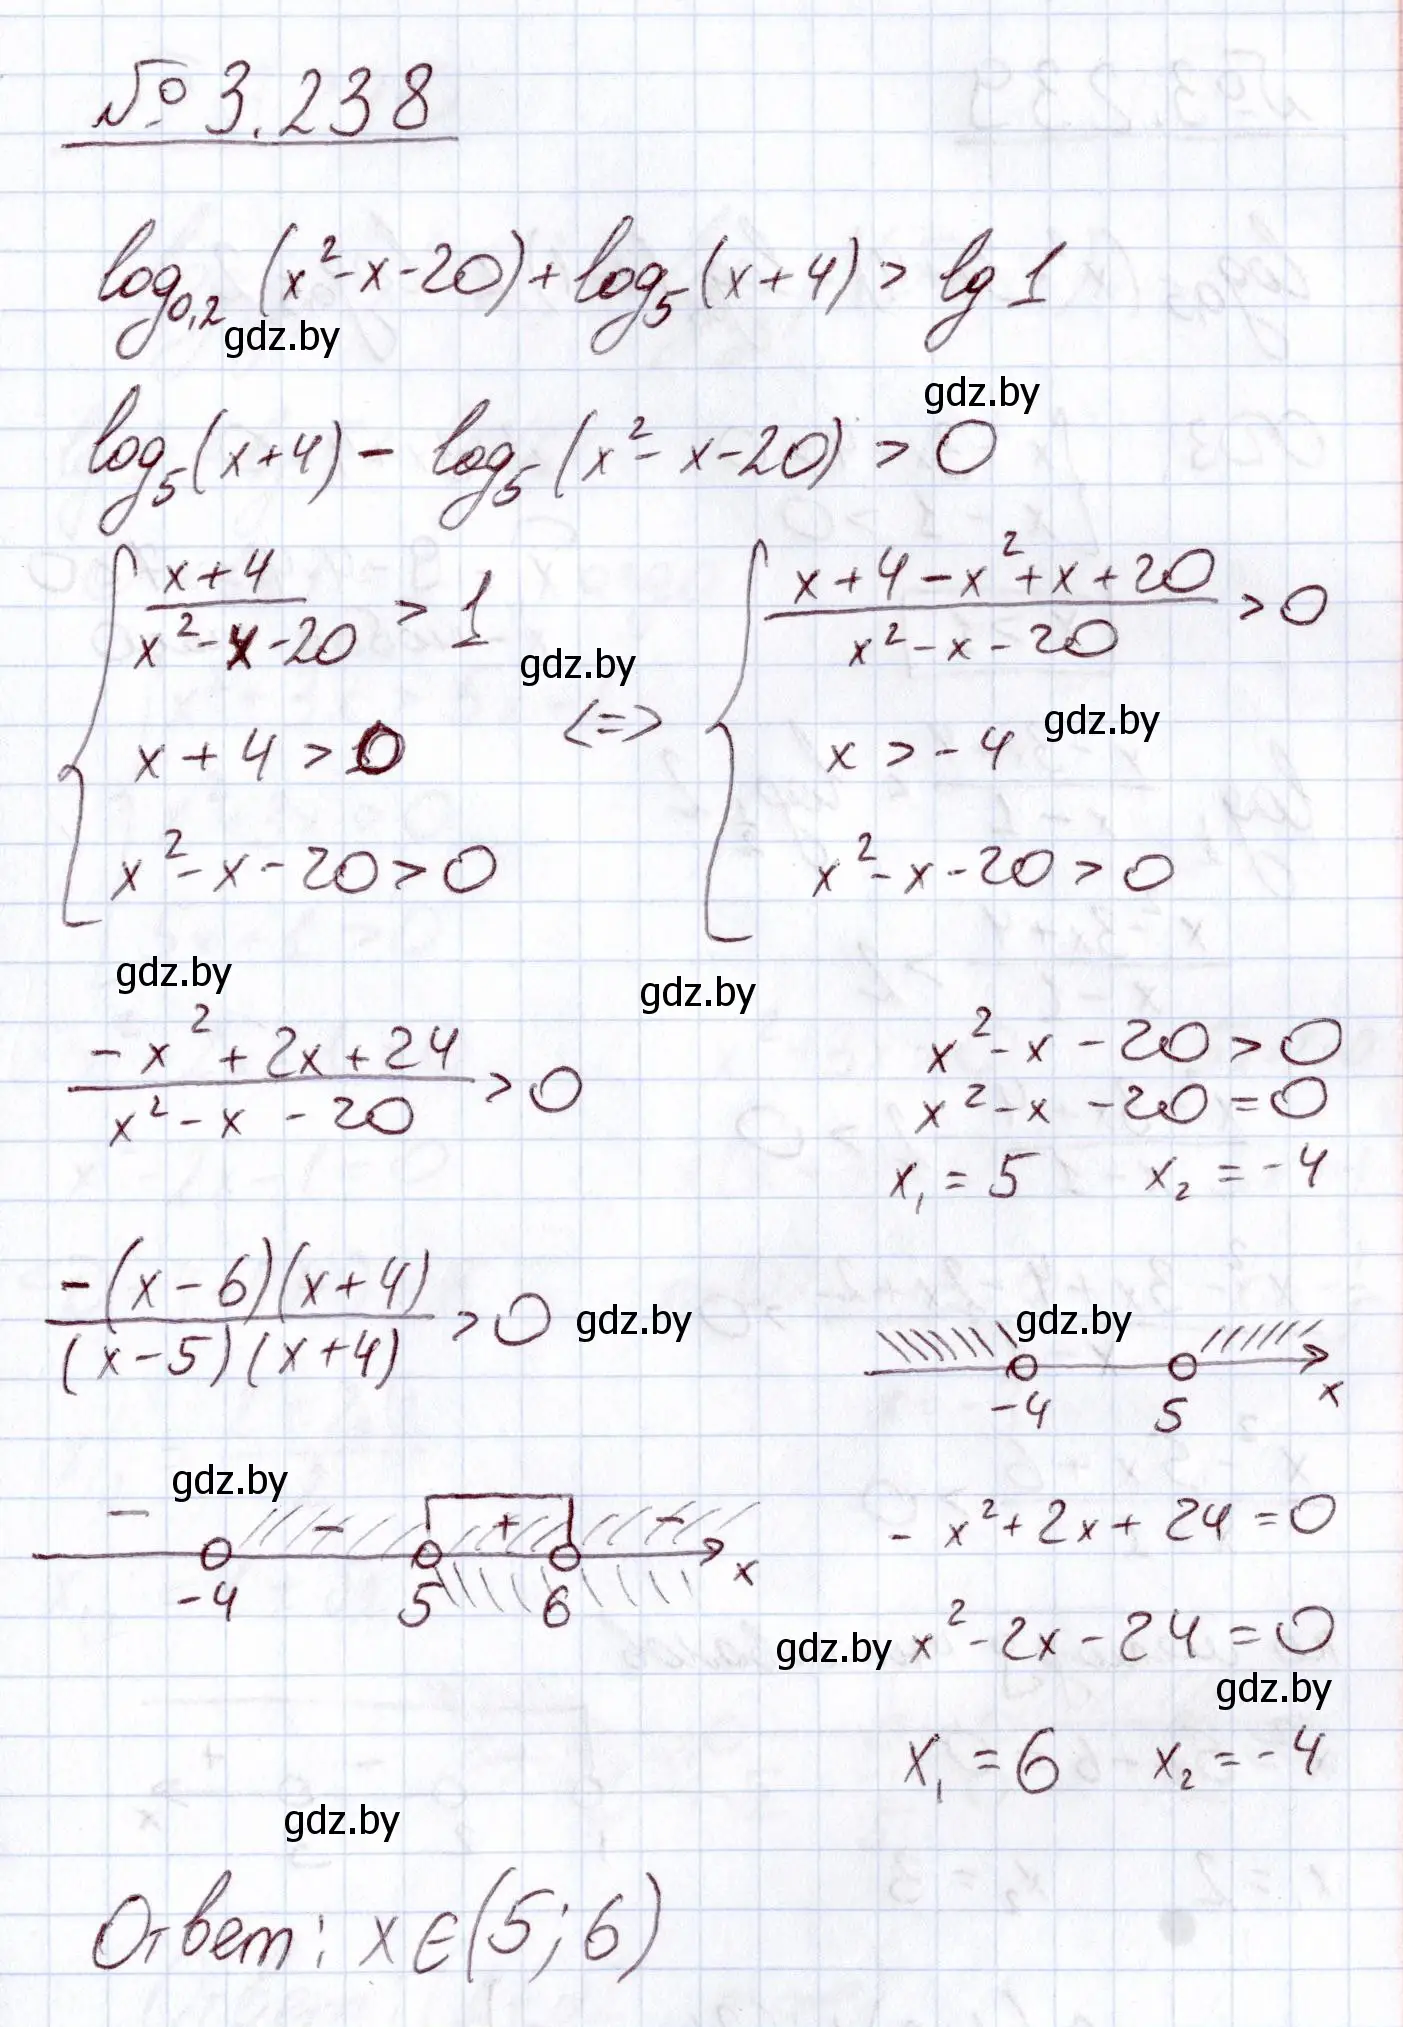 № 3.238
log₀,₂ (x² - x - 20) + log₅ (x + 4) > lg 1
gdz.by
gdz.by
log₅ (x + 4) - log₅ (x² - x - 20) > 0
{ (x + 4)/(x² - x - 20) > 1 <=> { (x + 4 - x² + x + 20)/(x² - x - 20) > 0
gdz.by
x + 4 > 0 x > -4 gdz.by
x² - x - 20 > 0 x² - x - 20 > 0
gdz.by gdz.by
(-x² + 2x + 24)/(x² - x - 20) > 0
x² - x - 20 > 0
x² - x - 20 = 0
x₁ = 5 x₂ = -4
(-(x - 6)(x + 4))/((x - 5)(x + 4)) > 0 gdz.by gdz.by
-4 5 x
gdz.by
- - + - x
-4 5 6
-x² + 2x + 24 = 0
gdz.by x² - 2x - 24 = 0
gdz.by
x₁ = 6 x₂ = -4
gdz.by
Ответ: x ∈ (5; 6)